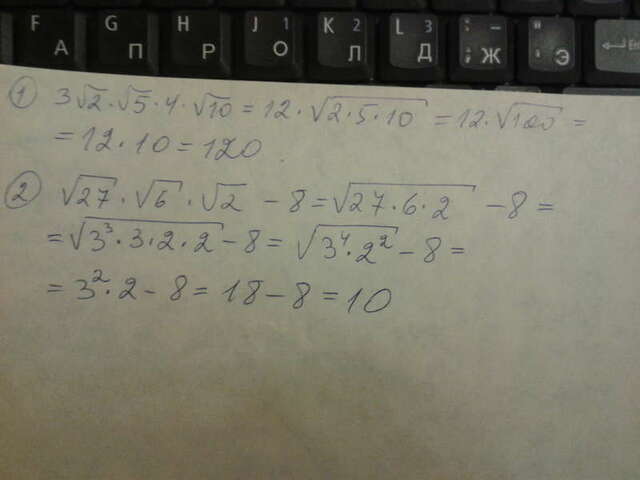 F G H J 1 K 2 L 3 : ; " '
А П Р О Л Д Ж Э
① 3√2·√5·4·√10 = 12·√2·5·10 = 12·√100 =
= 12·10 = 120.
② √27·√6·√2 - 8 = √27·6·2 - 8 =
= √3³·3·2·2 - 8 = √3⁴·2² - 8 =
= 3²·2 - 8 = 18 - 8 = 10